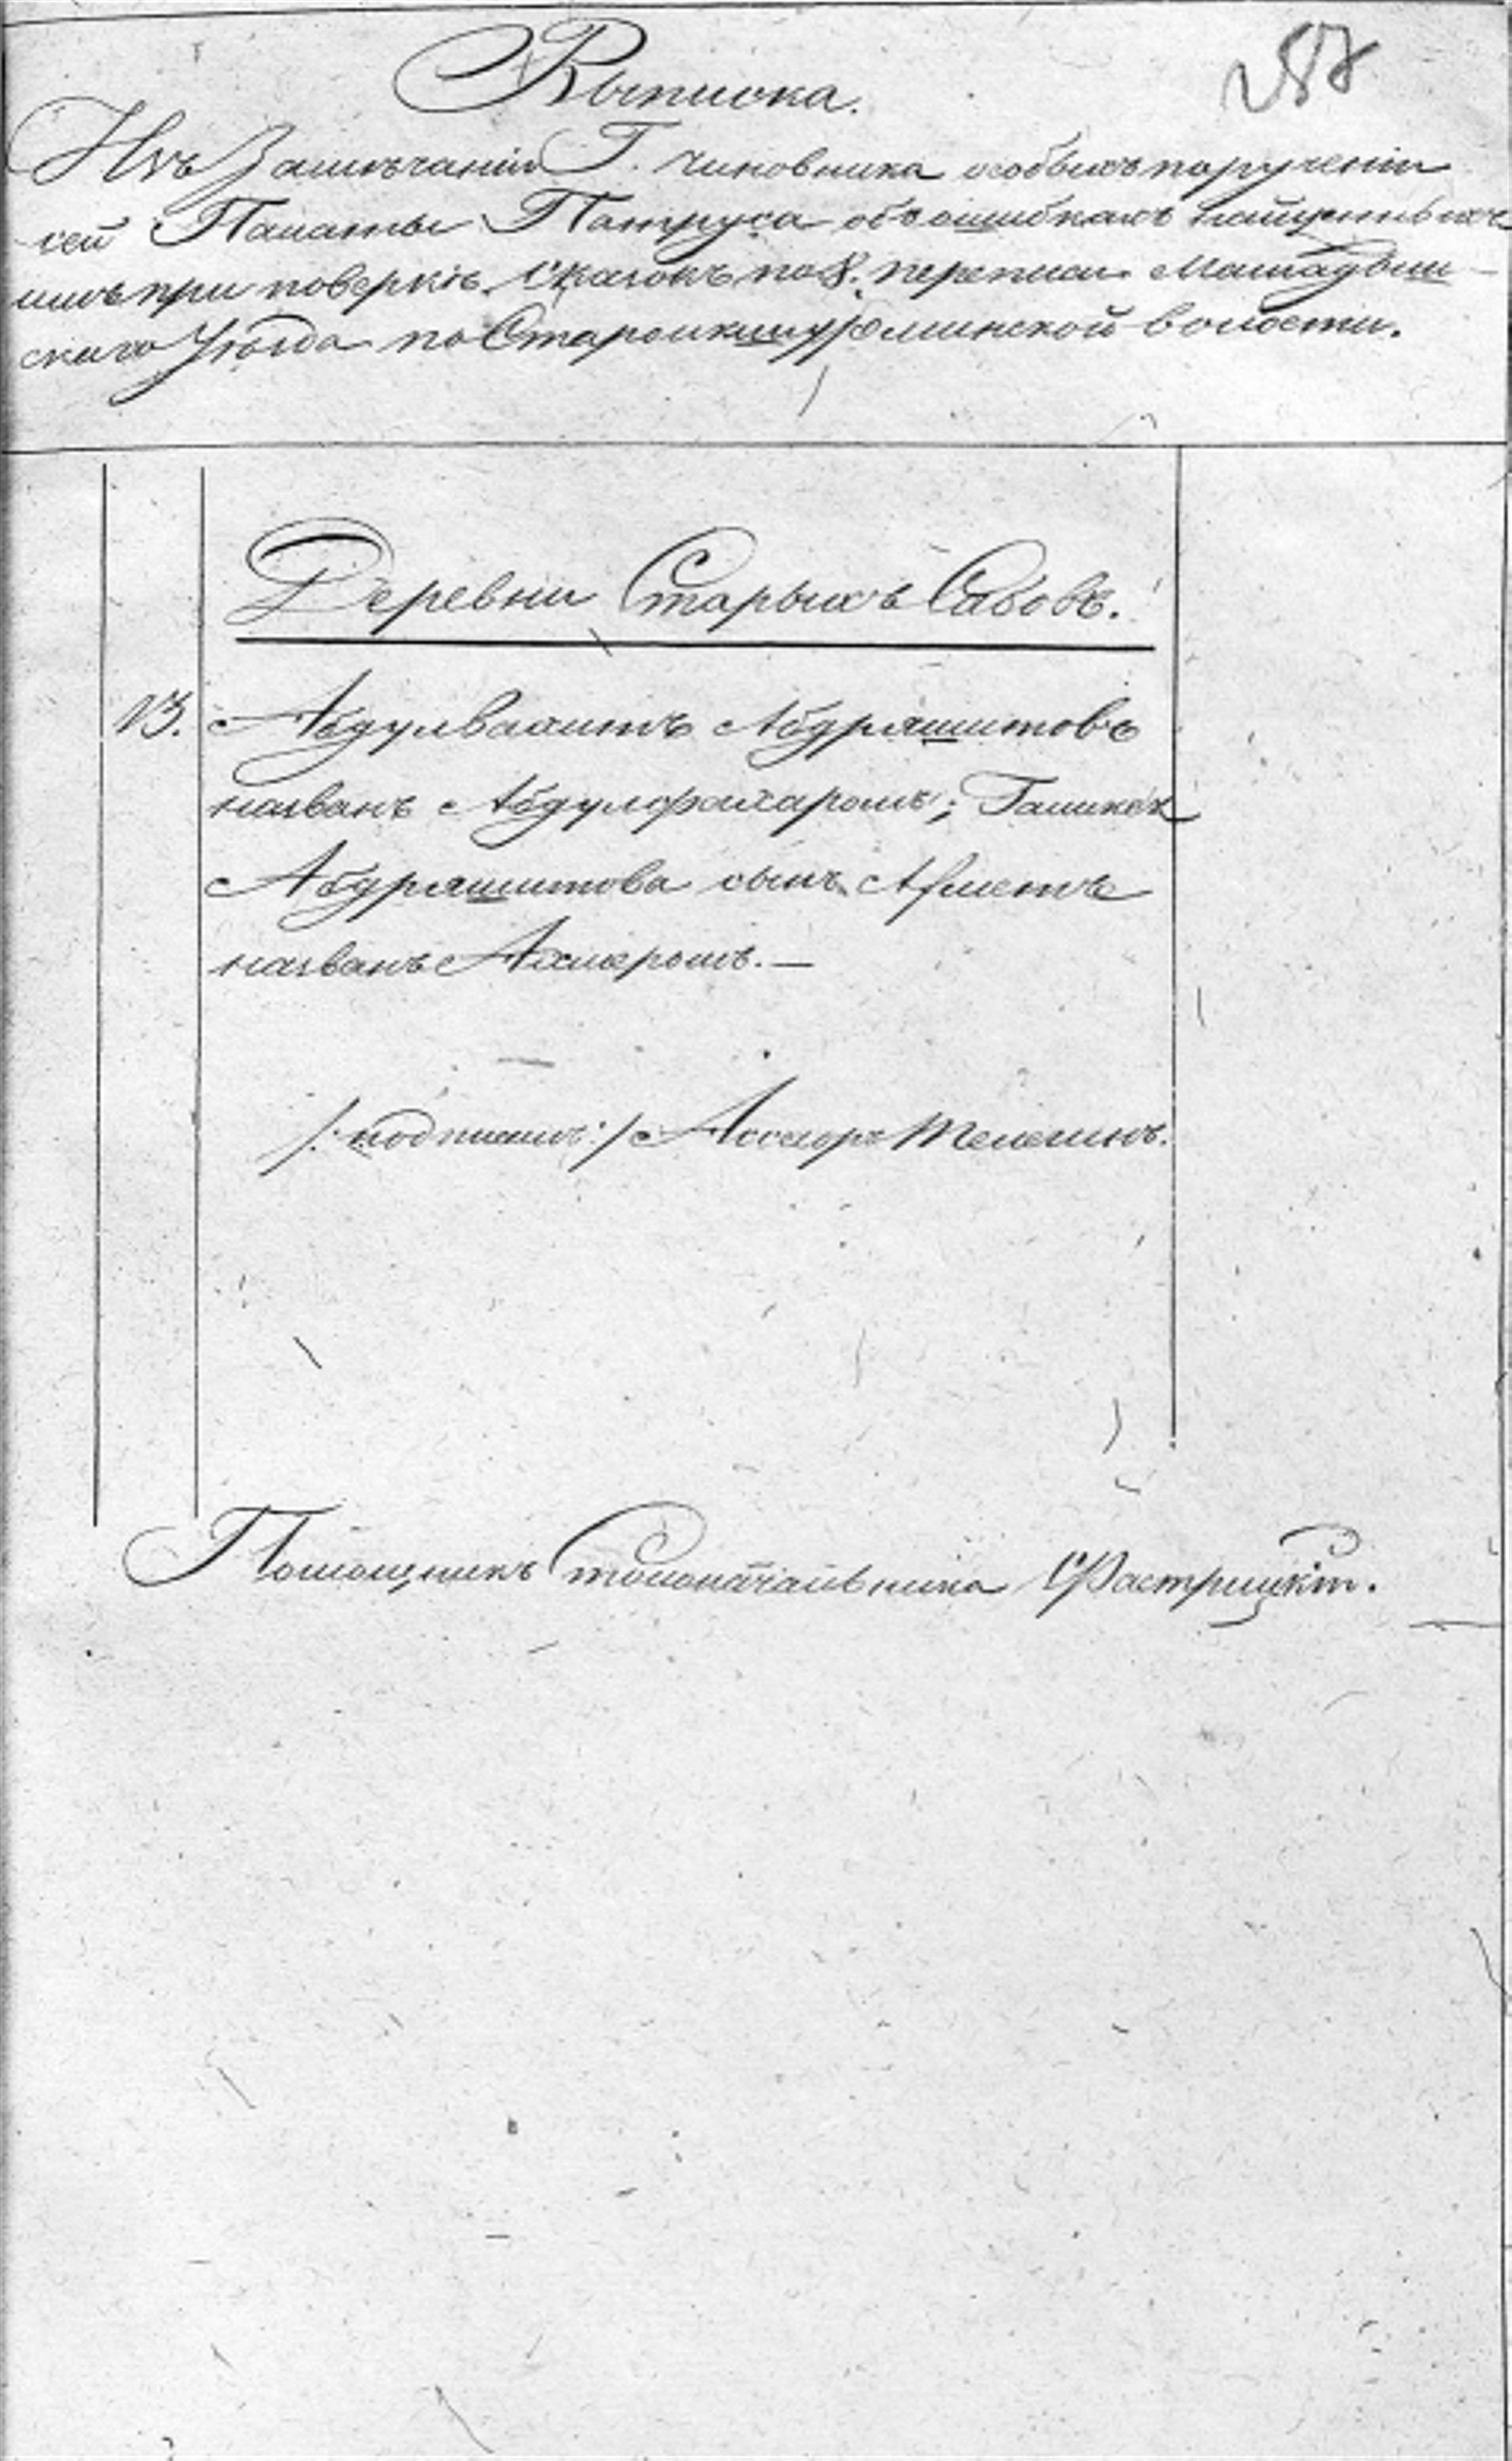 Выписка.
287
Изъ Замѣчанія Г. Чиновника особыхъ порученій
сей Палаты Патруса объ ошибкахъ найденныхъ
имъ при повѣркѣ Сказокъ по 8. переписи Мамадыш-
скаго Уѣзда по Староикшурминской волости.
Деревни Старыхъ Сабовъ.
13. Абдулвахитъ Абдряшитовъ
названъ Абдулфахаромъ;
Абдряшитова сынъ Ахметъ
названъ Ахмеромъ. —
/: подписалъ :/ Ассесоръ Телешовъ.
Помощникъ Столоначальника